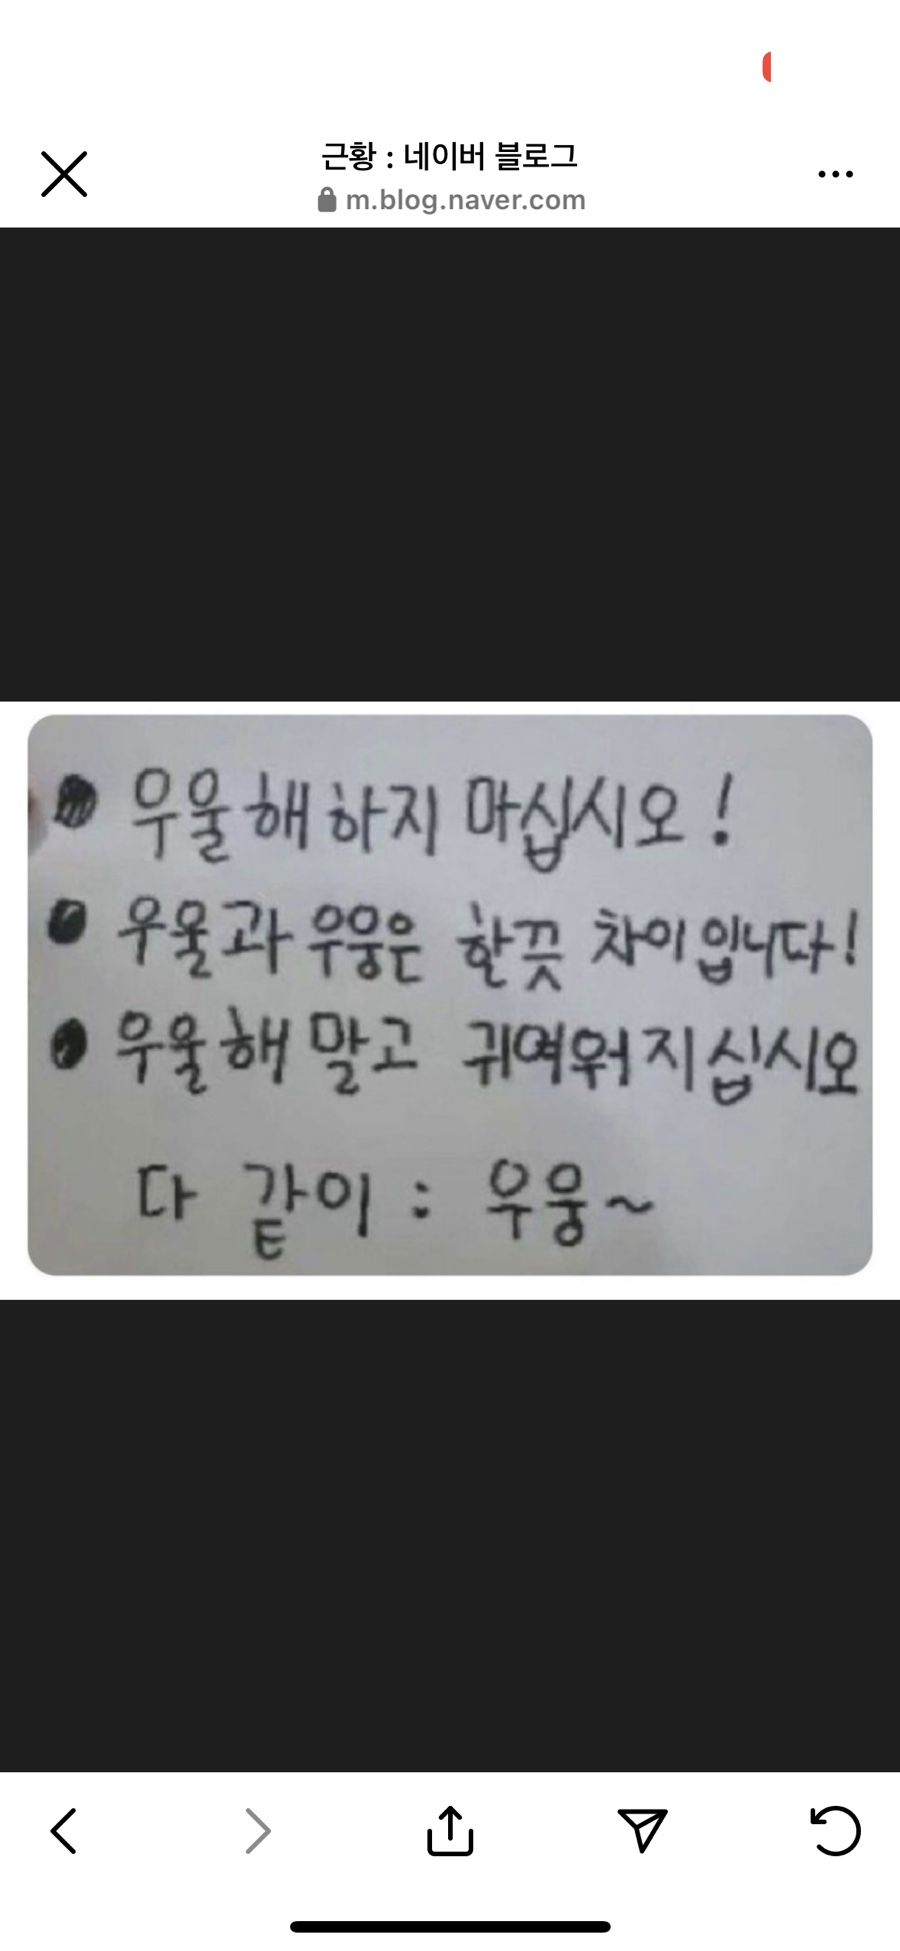 근황 : 네이버 블로그
m.blog.naver.com
● 우울해하지 마십시오!
● 우울과 우웅은 한끗 차이입니다!
● 우울해 말고 귀여워지십시오
다 같이 : 우웅~